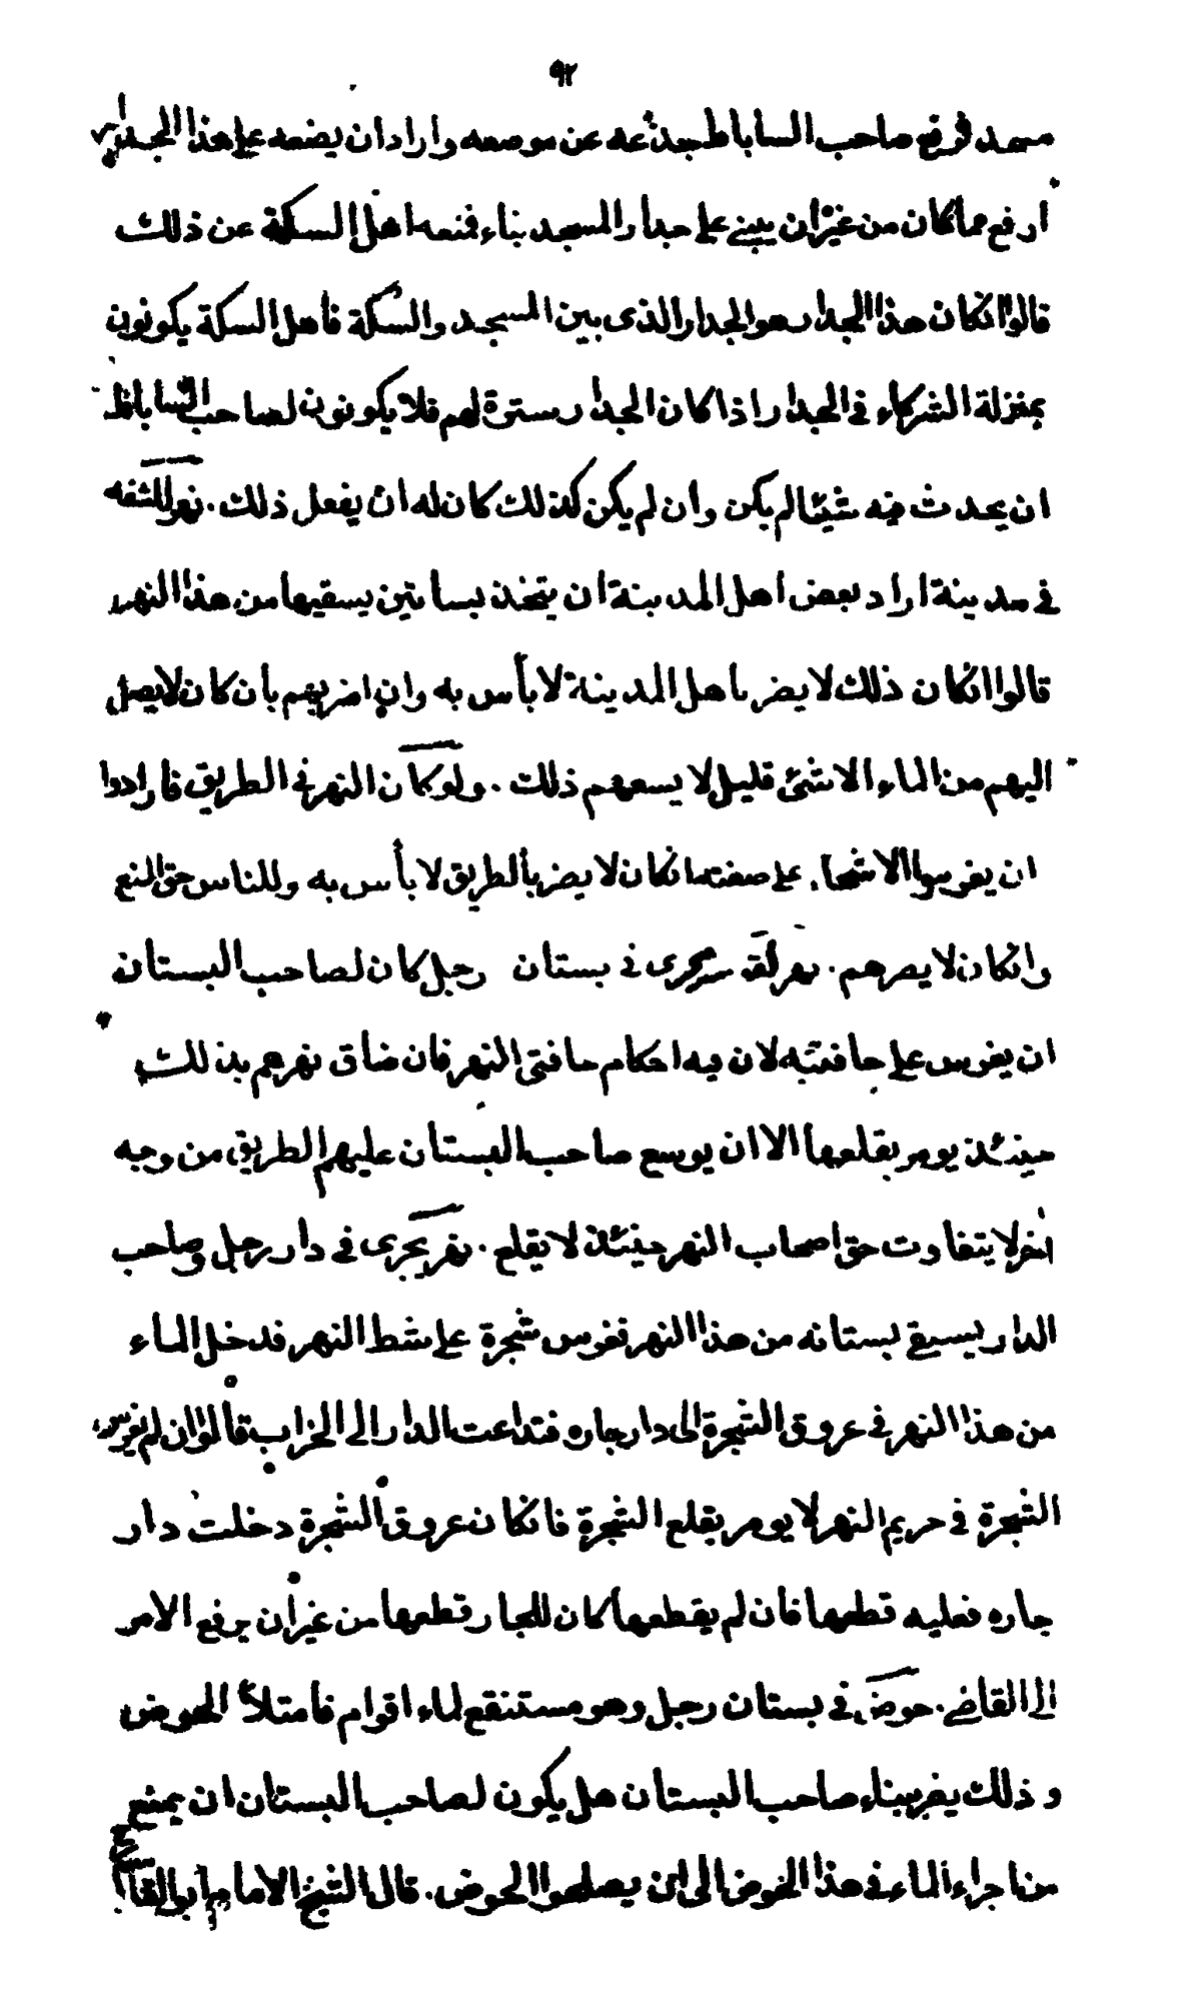 ٩٢
مسجد فرفع صاحب الساباط جذعه عن موضعه واراد ان يضعه على هذا الجدار
ارفع مما كان من غير ان يبني على جدار المسجد بناء فمنعه اهل السكة عن ذلك
قالوا انكان هذا الجدار هو الجدار الذى بين المسجد والسكة فأهل السكة يكونون
بمنزلة الشركاء في الجدار اذا كان الجدار سترة لهم فلا يكونون لصاحب الساباط
ان يحدث فيه شيئا لم يكن وان لم يكن كذلك كان له ان يفعل ذلك . نهر للشفه
في مدينة اراد بعض اهل المدينة ان يتخذ بساتين يسقيها من هذا النهر
قالوا انكان ذلك لا يضر باهل المدينة لا بأس به وان اضر بهم بأن كان لا يصل
اليهم من الماء الا شئ قليل لا يسعهم ذلك . ولو كان النهر في الطريق فارادوا
ان يغرسوا الاشجار على ضفته انكان لا يضر بالطريق لا بأس به وللناس حق المنع
وانكان لا يضرهم . نهر لقوم يجرى في بستان رجل كان لصاحب البستان
ان يغرس على حافتيه لان فيه احكام حافتي النهر فان ضاق نهرهم بذلك
حينئذ يومر بقلعها الا ان يوسع صاحب البستان عليهم الطريق من وجه
اخر لا يتفاوت حق اصحاب النهر حينئذ لا يقلع . نهر يجرى في دار رجل وصاحب
الدار يسقي بستانه من هذا النهر فغرس شجرة على شط النهر فدخل الماء
من هذا النهر في عروق الشجرة الى دار جاره فتداعت الدار الى الخراب قالوا ان لم يغرس
الشجرة في حريم النهر لا يومر بقلع الشجرة فانكان عروق الشجرة دخلت دار
جاره فعليه قطعها فان لم يقطعها كان للجار قطعها من غير ان يرفع الامر
الى القاضي . حوض في بستان رجل وهو مستنقع لماء اقوام فامتلأ الحوض
وذلك يضر ببناء صاحب البستان هل يكون لصاحب البستان ان يمنع
من اجراء الماء في هذا الحوض الى ان يصلحوا الحوض . قال الشيخ الامام ابوالقاسم